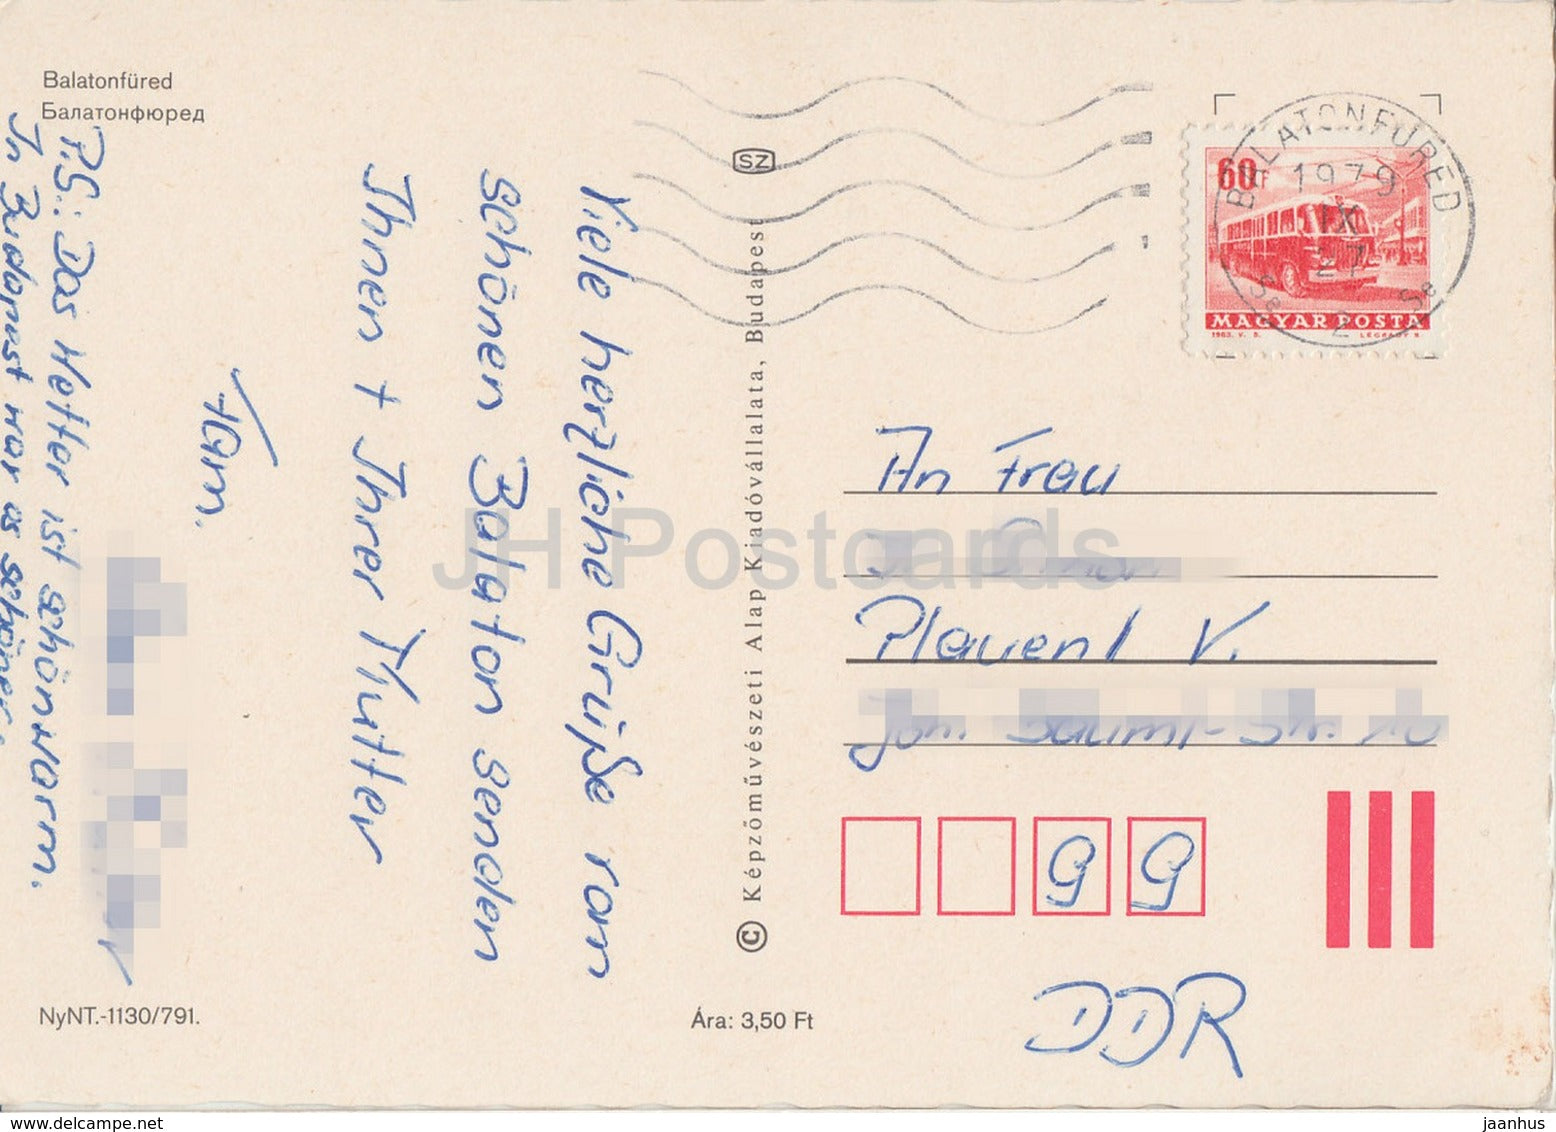 Balatonfüred
Балатонфюред
P.S.: Das Wetter ist schön warm.
In Budapest war es schöner.
Viele herzliche Grüße vom
schönen Balaton senden
Ihnen + Ihrer Mutter
Fam.
SZ
© Képzőművészeti Alap Kiadóvállalata, Budapest
BALATONFÜRED
1979
IX
27
2
60 f
MAGYAR POSTA
1963. V. 5.
LÉGRÁDY S.
JH Postcards
An Frau
Plauen / V.
99
DDR
NyNT.-1130/791.
Ára: 3,50 Ft
www.delcampe.net
jaanhus